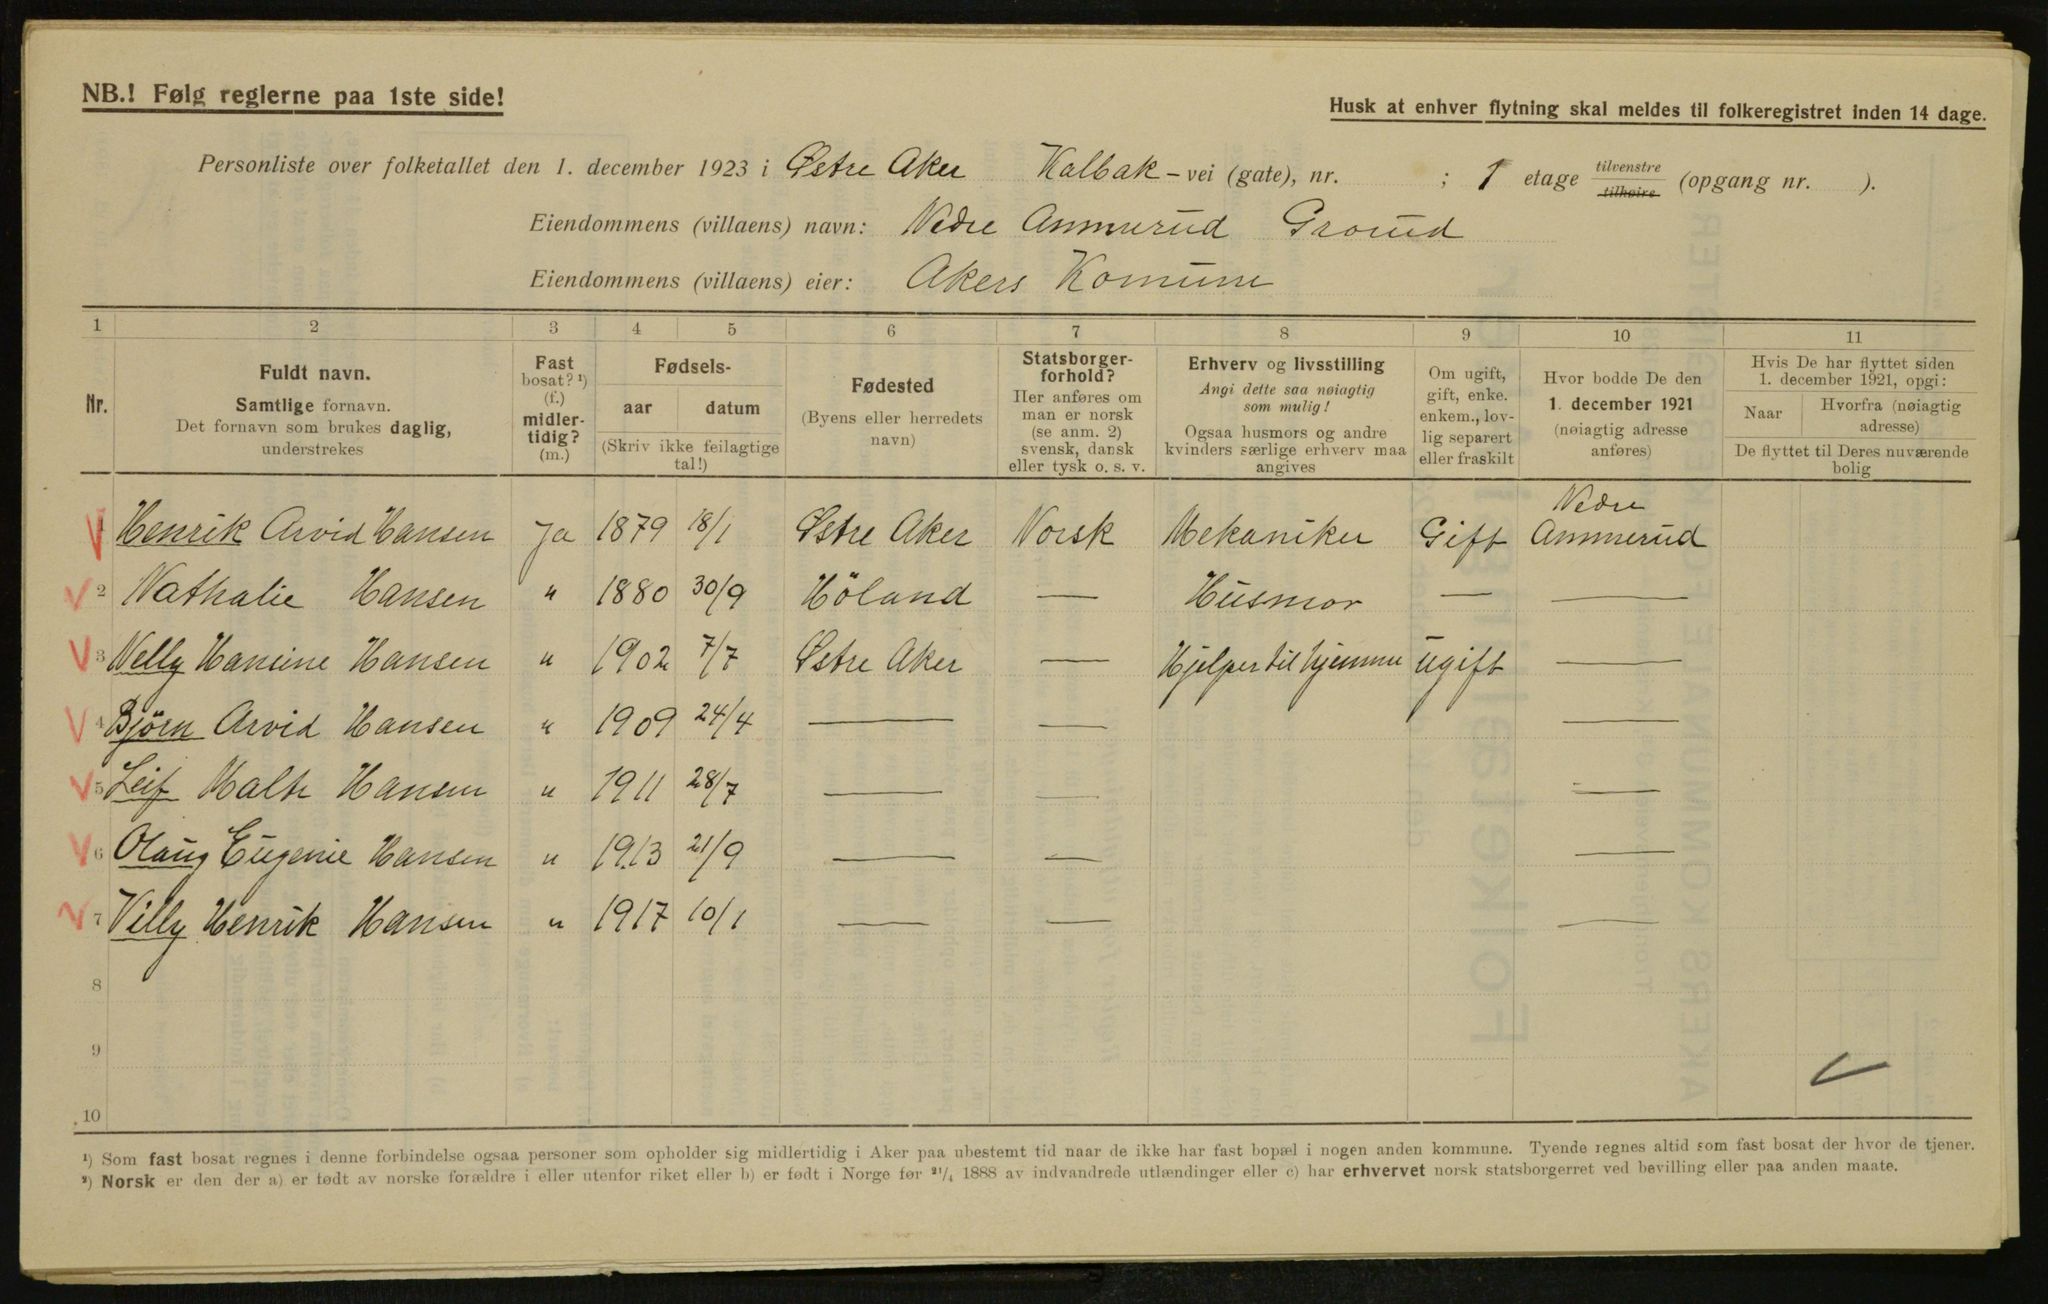 NB.! Følg reglerne paa 1ste side!
Husk at enhver flytning skal meldes til folkeregistret inden 14 dage.
Personliste over folketallet den 1. december 1923 i Østre Aker Kalbak - vei (gate), nr. ; 1 etage tilvenstre tilhøire (opgang nr. ).
Eiendommens (villaens) navn: Nedre Ammerud Grorud
Eiendommens (villaens) eier: Akers Komune
1 2 3 4 5 6 7 8 9 10 11
Nr.
Fuldt navn.
Samtlige fornavn.
Det fornavn som brukes daglig,
understrekes
Fast
bosat? ¹)
(f.)
midler-
tidig?
(m.)
Fødsels-
aar datum
(Skriv ikke feilagtige
tal!)
Fødested
(Byens eller herredets
navn)
Statsborger-
forhold?
Her anføres om
man er norsk
(se anm. 2)
svensk, dansk
eller tysk o. s. v.
Erhverv og livsstilling
Angi dette saa nøiagtig
som mulig!
Ogsaa husmors og andre
kvinders særlige erhverv maa
angives
Om ugift,
gift, enke.
enkem., lov-
lig separert
eller fraskilt
Hvor bodde De den
1. december 1921
(nøiagtig adresse
anføres)
Hvis De har flyttet siden
1. december 1921, opgi:
Naar
Hvorfra (nøiagtig
adresse)
De flyttet til Deres nuværende
bolig
Nedre
1 Henrik Arvid Hansen Ja 1879 18/1 Østre Aker Norsk Mekaniker Gift Ammerud
2 Nathalie Hansen " 1880 30/9 Höland — Husmor — —
3 Nelly Hansine Hansen " 1902 7/7 Østre Aker — Hjelper til hjemme Ugift —
4 Björn Arvid Hansen " 1909 24/4 — — —
5 Leif Hansen " 1911 28/7 — — —
6 Olaug Eugenie Hansen " 1913 21/9 — — —
7 Villy Henrik Hansen " 1917 10/1 — — —
8
9
10
¹) Som fast bosat regnes i denne forbindelse ogsaa personer som opholder sig midlertidig i Aker paa ubestemt tid naar de ikke har fast bopæl i nogen anden kommune. Tyende regnes altid som fast bosat der hvor de tjener.
²) Norsk er den der a) er født av norske forældre i eller utenfor riket eller b) er født i Norge før ²¹/₄ 1888 av indvandrede utlændinger eller c) har erhvervet norsk statsborgerret ved bevilling eller paa anden maate.